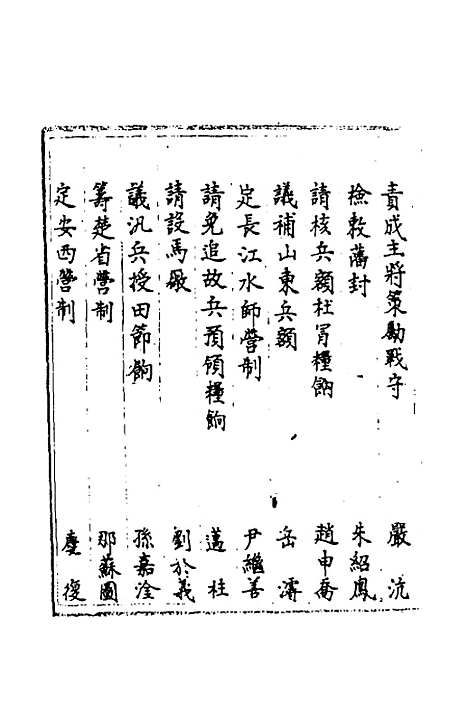 責成主將策勘戰守 嚴沆
檢敕藩封 朱紹鳳
請核兵額杜冐糧餉 趙申喬
議補山東兵額 岳濬
定長江水師營制 尹繼善
請免追故兵預領糧餉 邁柱
請設馬廠 劉於義
議汎兵授田節餉 孫嘉淦
籌楚省營制 那蘇圖
定安西營制 慶復